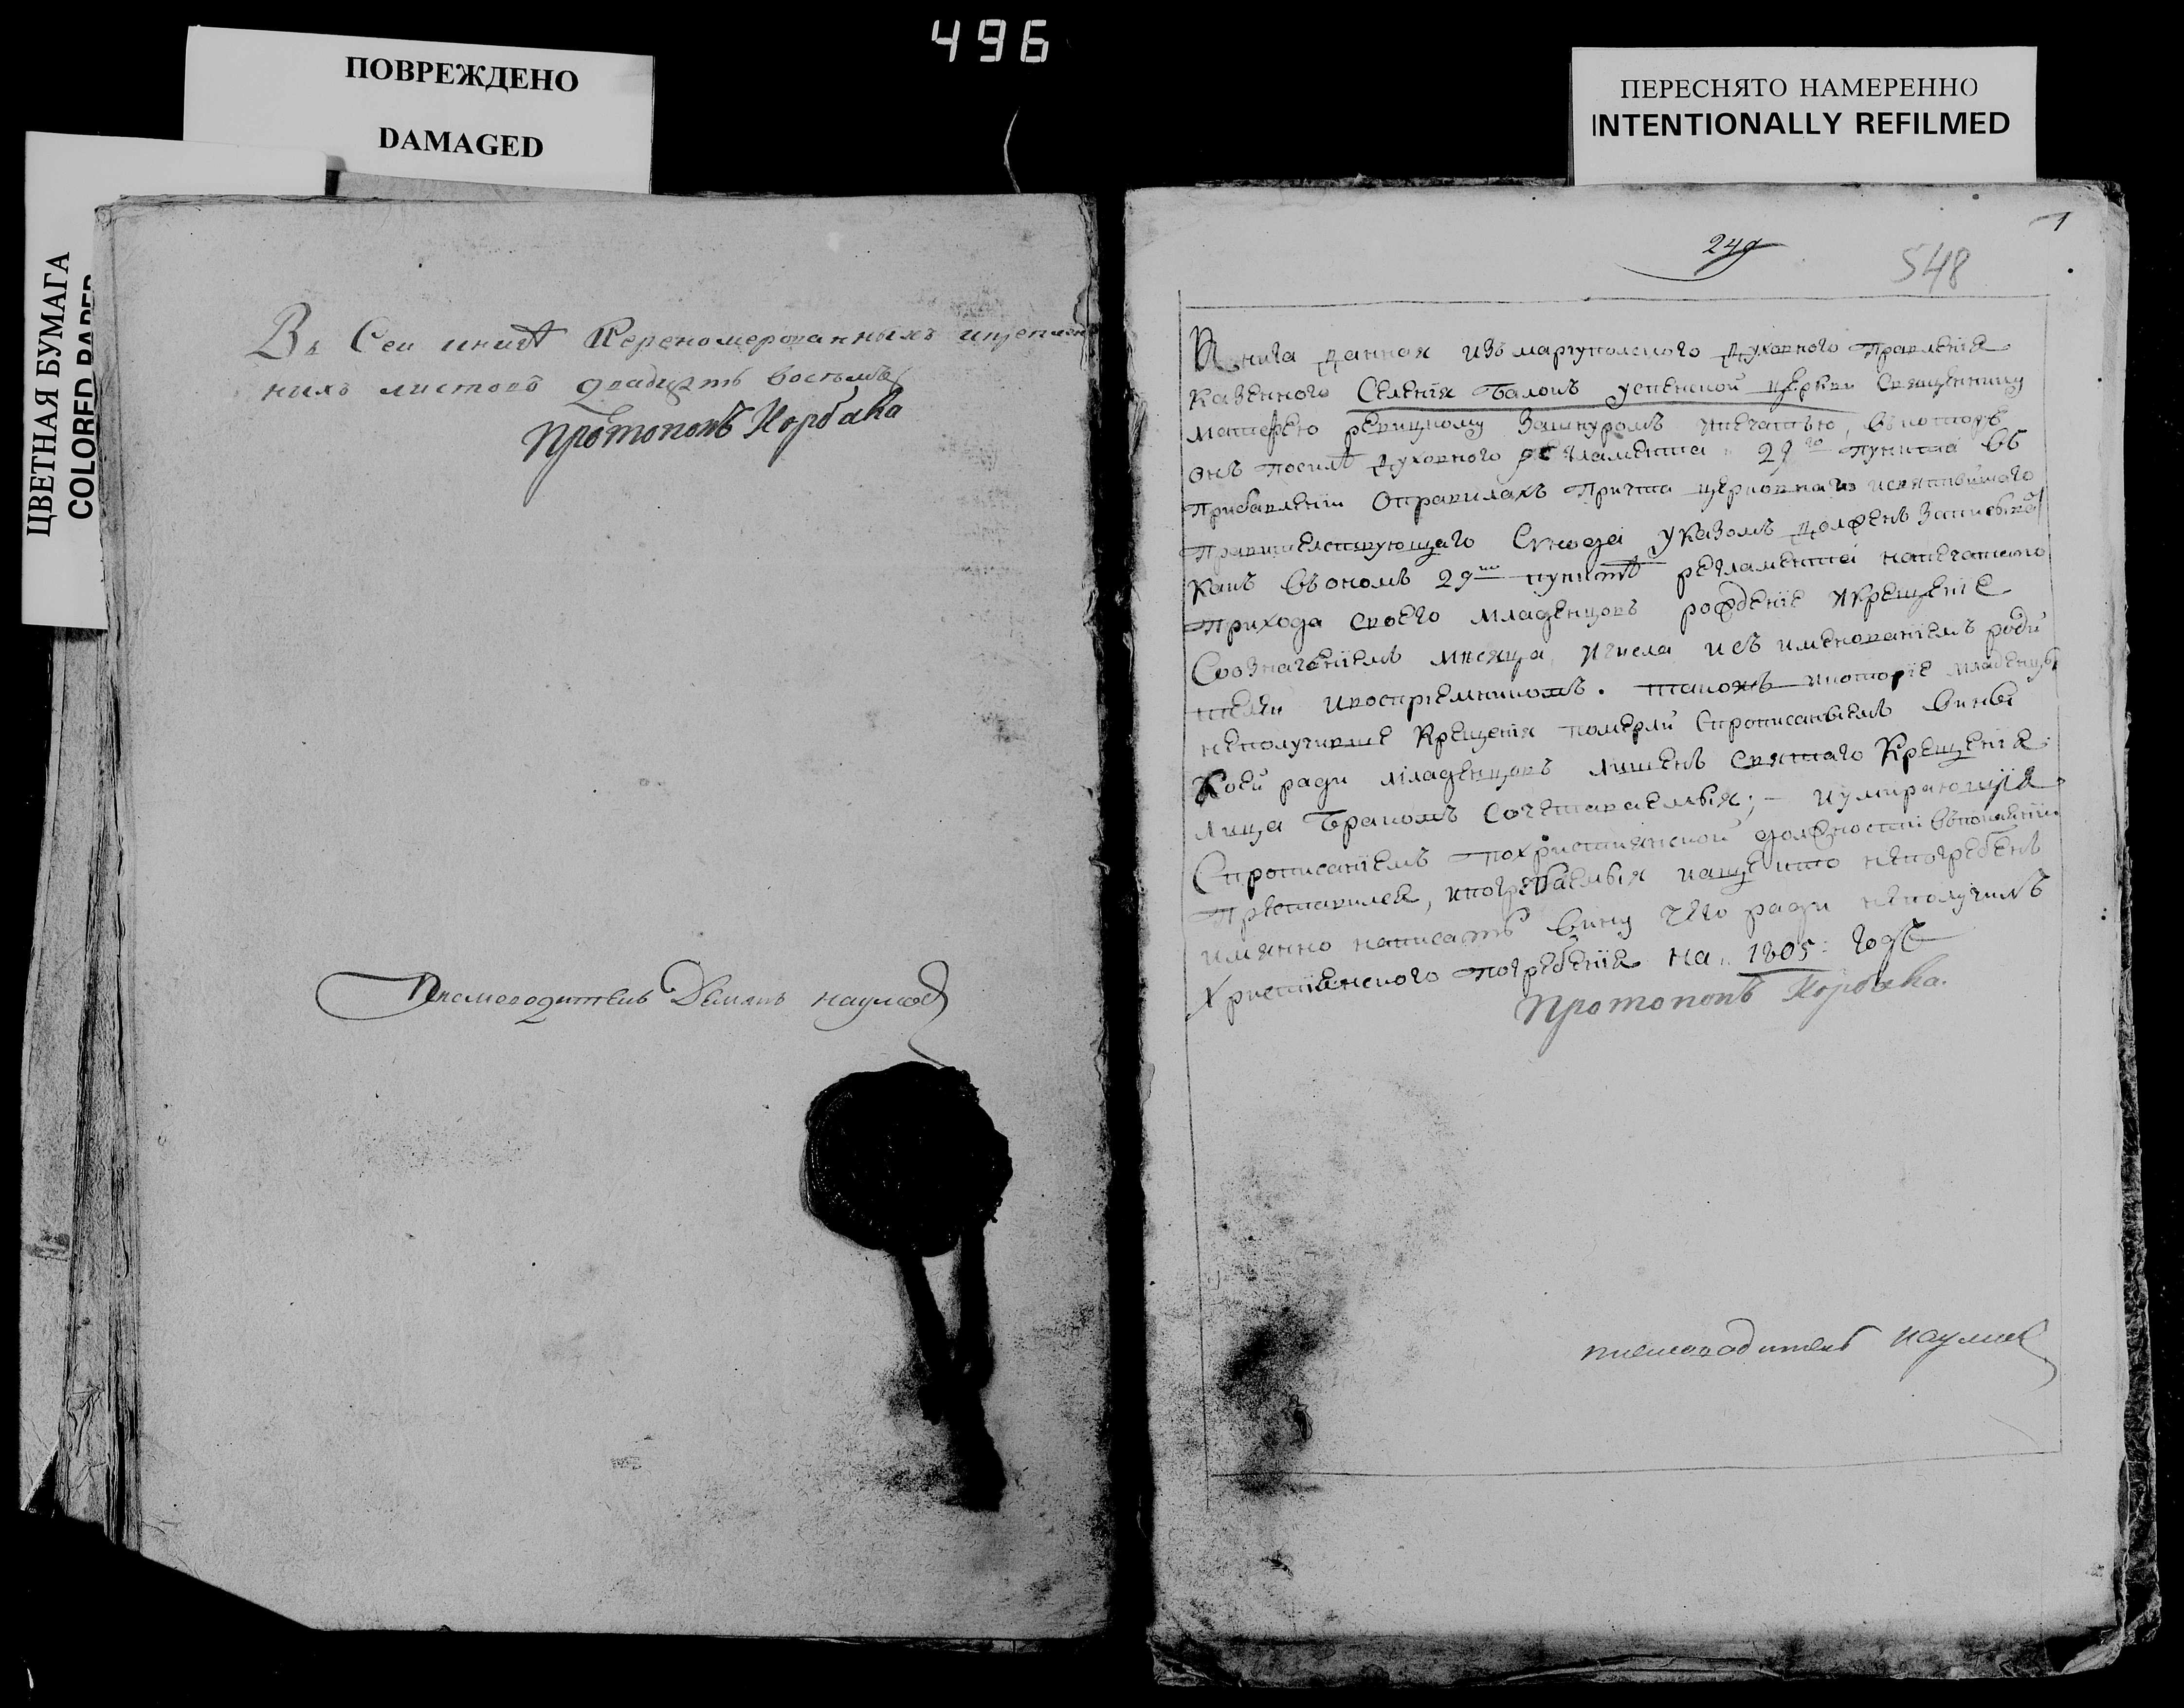 496
ПОВРЕЖДЕНО
DAMAGED
ПЕРЕСНЯТО НАМЕРЕННО
INTENTIONALLY REFILMED
ЦВЕТНАЯ БУМАГА
COLORED PAPER
Въ Сеи книгѣ Перекомерованныхъ
ныхъ листовъ двадцать восемь
Протопопъ Корбака
Писмоводитель Наумов
1
249
548
Книга данная изъ мариупольского духовного правления
казенного Селенія Балокъ успенской церкви Священнику
Матфею Зашнуромъ ипечатью, вкоторъ
онъ посилѣ духовного регламента 29го пункта въ
Прибавленіи Оправилахъ Причта церковнаго исвятейшаго
Правителствующаго Синода указомъ долженъ Записывать
какъ вономъ 29мъ пунктѣ регламента напечатано
Прихода своего младенцовъ рожденіе Икрещеніе
Созначеніемъ мисяца Ичисла исъ именованіемъ роди
телей ивоспріемниковъ. такожъ икоторіе младенцы
неполучивше Крещенія померли Спрописаніемъ вины
Коей ради младенцовъ лишенъ Святаго Крещенія
лица Бракомъ Сочетаваемыя; - Иумирающія
Спрописаніемъ похристианской должности впокаяніи
Преставилея, ипогребаемыя иащекто непогребенъ
имянно написать вину чего ради неполучилъ
Христіенского погребенія на 1805: годъ
Протопопъ Корбака.
писмоводитель Наумов